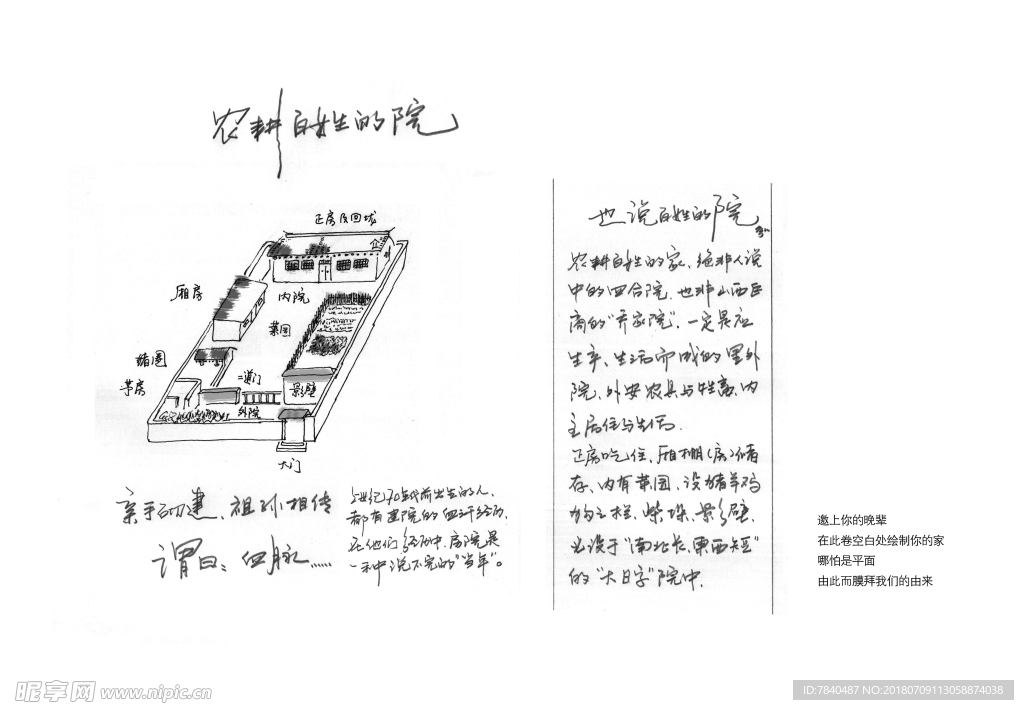 农耕百姓的院
正房
厢房
内院
菜园
猪圈
茅房
二道门
影壁
外院
大门
亲手 建、祖孙相传
谓曰：血脉……
世纪70年代前出生的人，
都有建院的血汗经历，
在他们经历中，房院是
一种说不完的“当年”。
也说百姓的院
农耕百姓的家、绝非人说
中的四合院，也非山西巨
商的“乔家院”，一定是在
生产、生活而成的里外
院，外安农具与牲畜、内
主居住与生活．
正房吃住，厢棚（房）储
存、内有菜园，设猪羊鸡
狗之栏，柴垛、影壁，
必设于“南北长、東西短”
的“大日字”院中．
邀上你的晚辈
在此卷空白处绘制你的家
哪怕是平面
由此而膜拜我们的由来
昵享网 www.nipic.cn
ID:7840487 NO:20180709113058874038